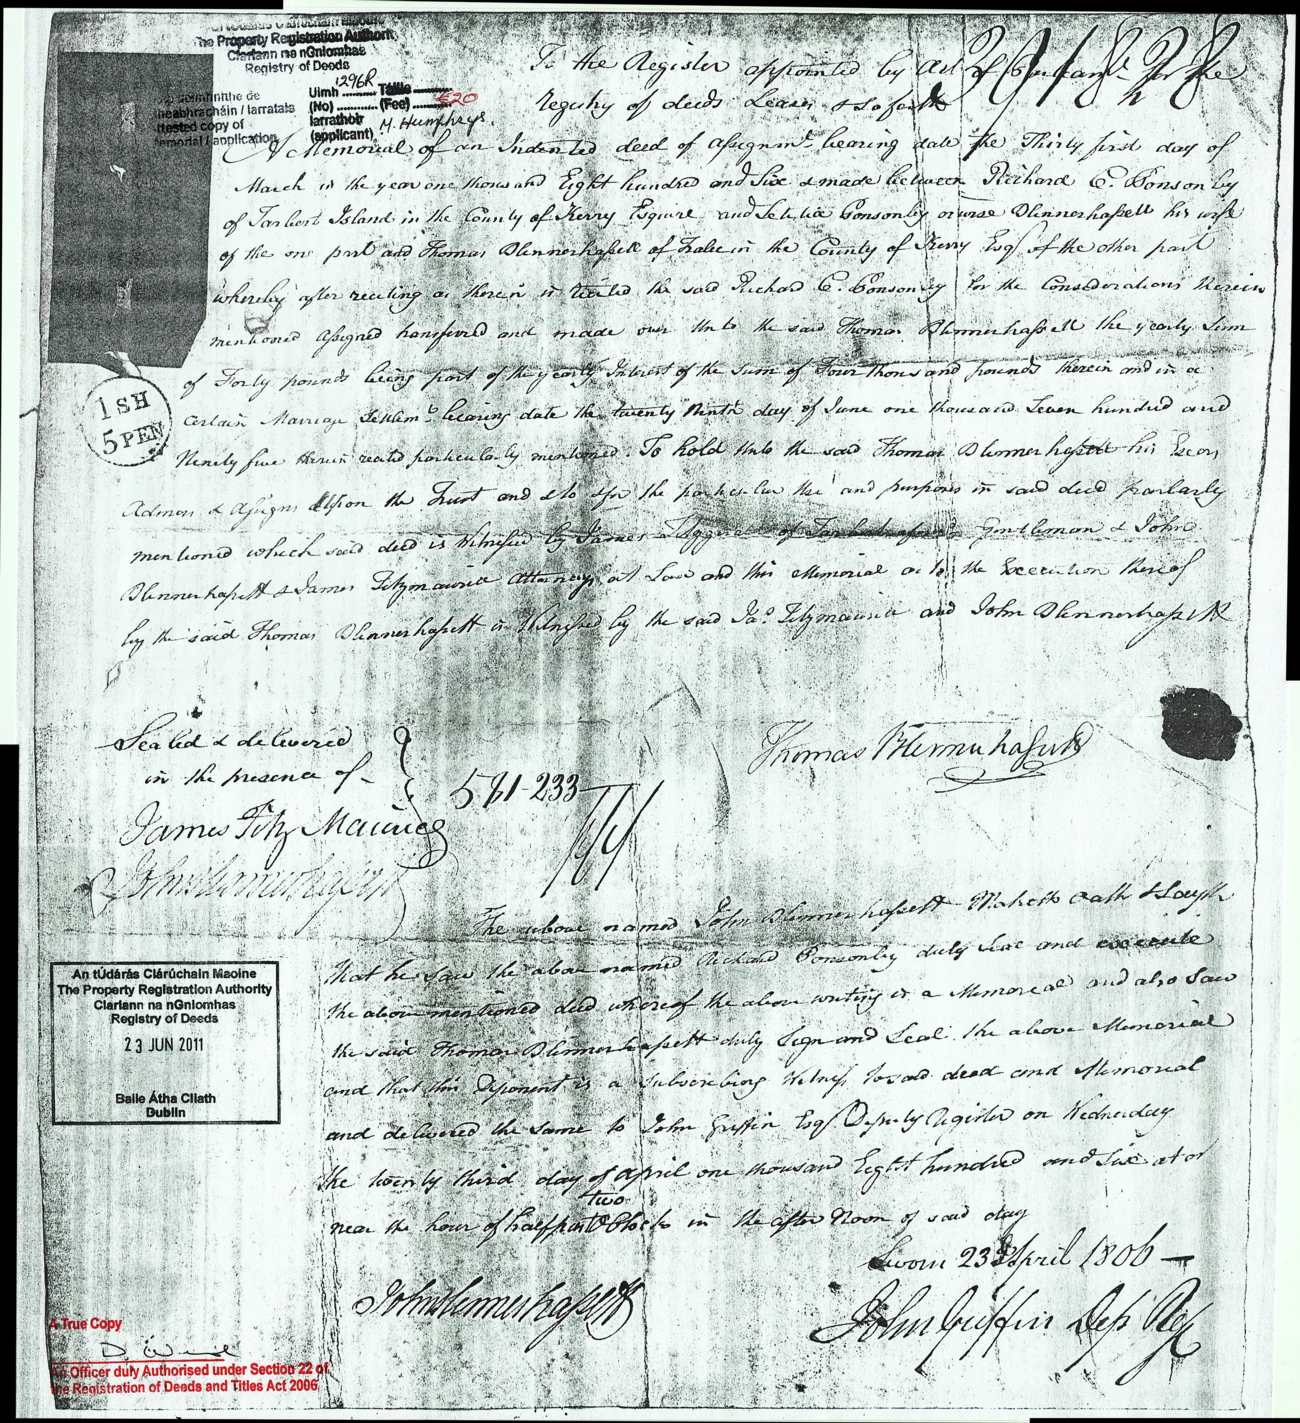 The Property Registration Authority
Clárlann na nGníomhas
Registry of Deeds
Uimh 1296R Táille
(No) (Fee) €20
Iarrathóir
(applicant) M. Humphrys.
attested copy of
memorial / application
381828
To the Register appointed by Act of Parliamt. for the
Registry of deeds Leases & so forth
A Memorial of an Indented deed of Assignmt. bearing date the Thirty first day of
March in the year one thousand Eight hundred and Six & made between Richard C. Ponsonby
of Tarbert Island in the County of Kerry Esquire and Letitia Ponsonby orwise Blennerhassett his wife
of the one part and Thomas Blennerhassett of Tralee in the County of Kerry Esqr. of the other part
whereby after reciting as therein is recited the said Richard C. Ponsonby for the Considerations therein
mentioned Assigned transferred and made over Unto the said Thomas Blennerhassett the yearly Sum
of Forty pounds being part of the yearly Interest of the sum of Four thousand pounds therein and in a
certain Marriage Settlemt. bearing date the twenty Ninth day of June one thousand Seven hundred and
Ninety five therein recited particularly mentioned. To hold Unto the said Thomas Blennerhassett his Execors
Admors & Assigns Upon the Trust and to & for the particular use and purposes in said deed particularly
mentioned which said deed is Witnessed by James of Gentleman & John
Blennerhassett & James Fitzmaurice Attorneys at Law and this Memorial as to the Execution thereof
by the said Thomas Blennerhassett is Witnessed by the said Jas. Fitzmaurice and John Blennerhassett
1 SH
5 PEN
Sealed & delivered
in the presence of
James Fitz Maurice
John Blennerhassett
Thomas Blennerhassett
581-233
The above named John Blennerhassett Maketh Oath & Sayth
that he saw the above named Richard Ponsonby duly Seal and execute
the above mentioned deed whereof the above writing is a Memorial and also Saw
the said Thomas Blennerhassett duly Sign and Seal the above Memorial
and that this Deponent is a Subscribing Witness to said deed and Memorial
and delivered the same to John Griffin Esqr. Deputy Register on Wednesday
the twenty third day of April one thousand Eight hundred and Six at or
near the hour of half past two O Clock in the after Noon of said day
Sworn 23d April 1806
John Blennerhassett
John Griffin Dep Reg
An tÚdarás Clárúcháin Maoine
The Property Registration Authority
Clárlann na nGníomhas
Registry of Deeds
23 JUN 2011
Baile Átha Cliath
Dublin
A True Copy
An Officer duly Authorised under Section 22 of
the Registration of Deeds and Titles Act 2006